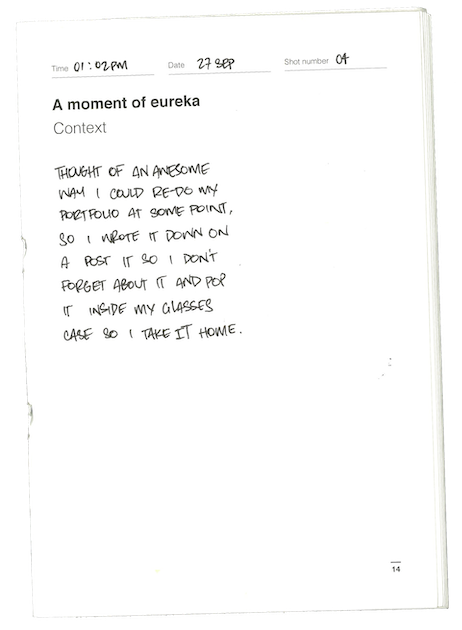 Time 01:02PM Date 27 SEP Shot number 04
A moment of eureka
Context
THOUGHT OF AN AWESOME
WAY I COULD RE-DO MY
PORTFOLIO AT SOME POINT,
SO I WROTE IT DOWN ON
A POST IT SO I DON'T
FORGET ABOUT IT AND POP
IT INSIDE MY GLASSES
CASE SO I TAKE IT HOME.
14